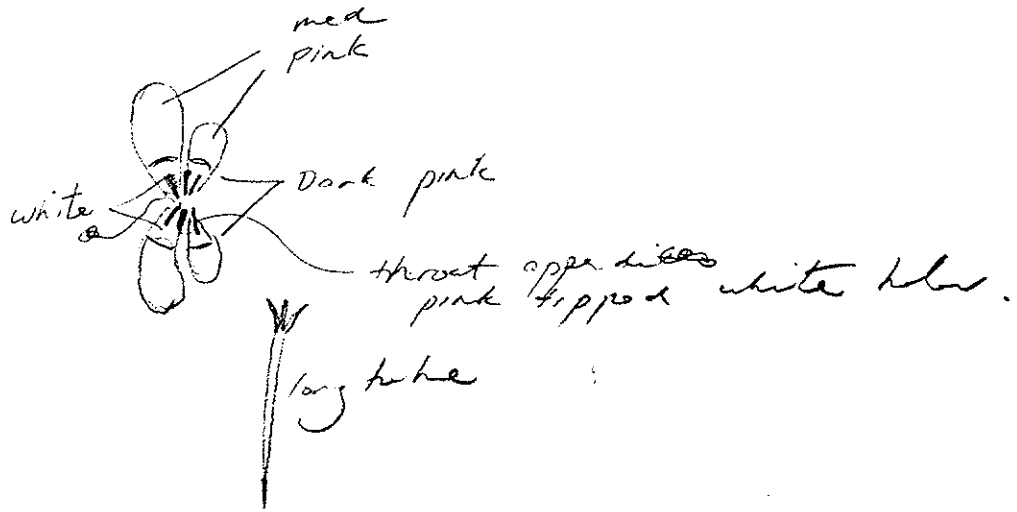 med
pink
Dark pink
white
throat appendices
pink tipped white below.
long tube